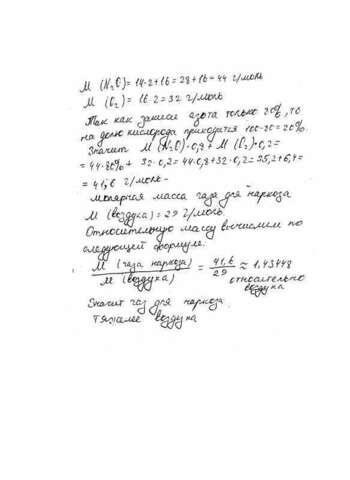 M (N₂O) = 14·2+16 = 28+16 = 44 г/моль
M (O₂) = 16·2 = 32 г/моль
Так как закиси азота только 80%, то
на долю кислорода приходится 100-80 = 20%.
Значит M (N₂O)·0,8 + M (O₂)·0,2 =
= 44·80% + 32·0,2 = 44·0,8 + 32·0,2 = 35,2+6,4 =
= 41,6 г/моль -
молярная масса газа для наркоза
M (воздуха) = 29 г/моль.
Относительную массу вычислим по
следующей формуле.
M (газа наркоза) / M (воздуха) = 41,6 / 29 ≈ 1,43448
относительно
воздуха
Значит газ для наркоза
тяжелее воздуха